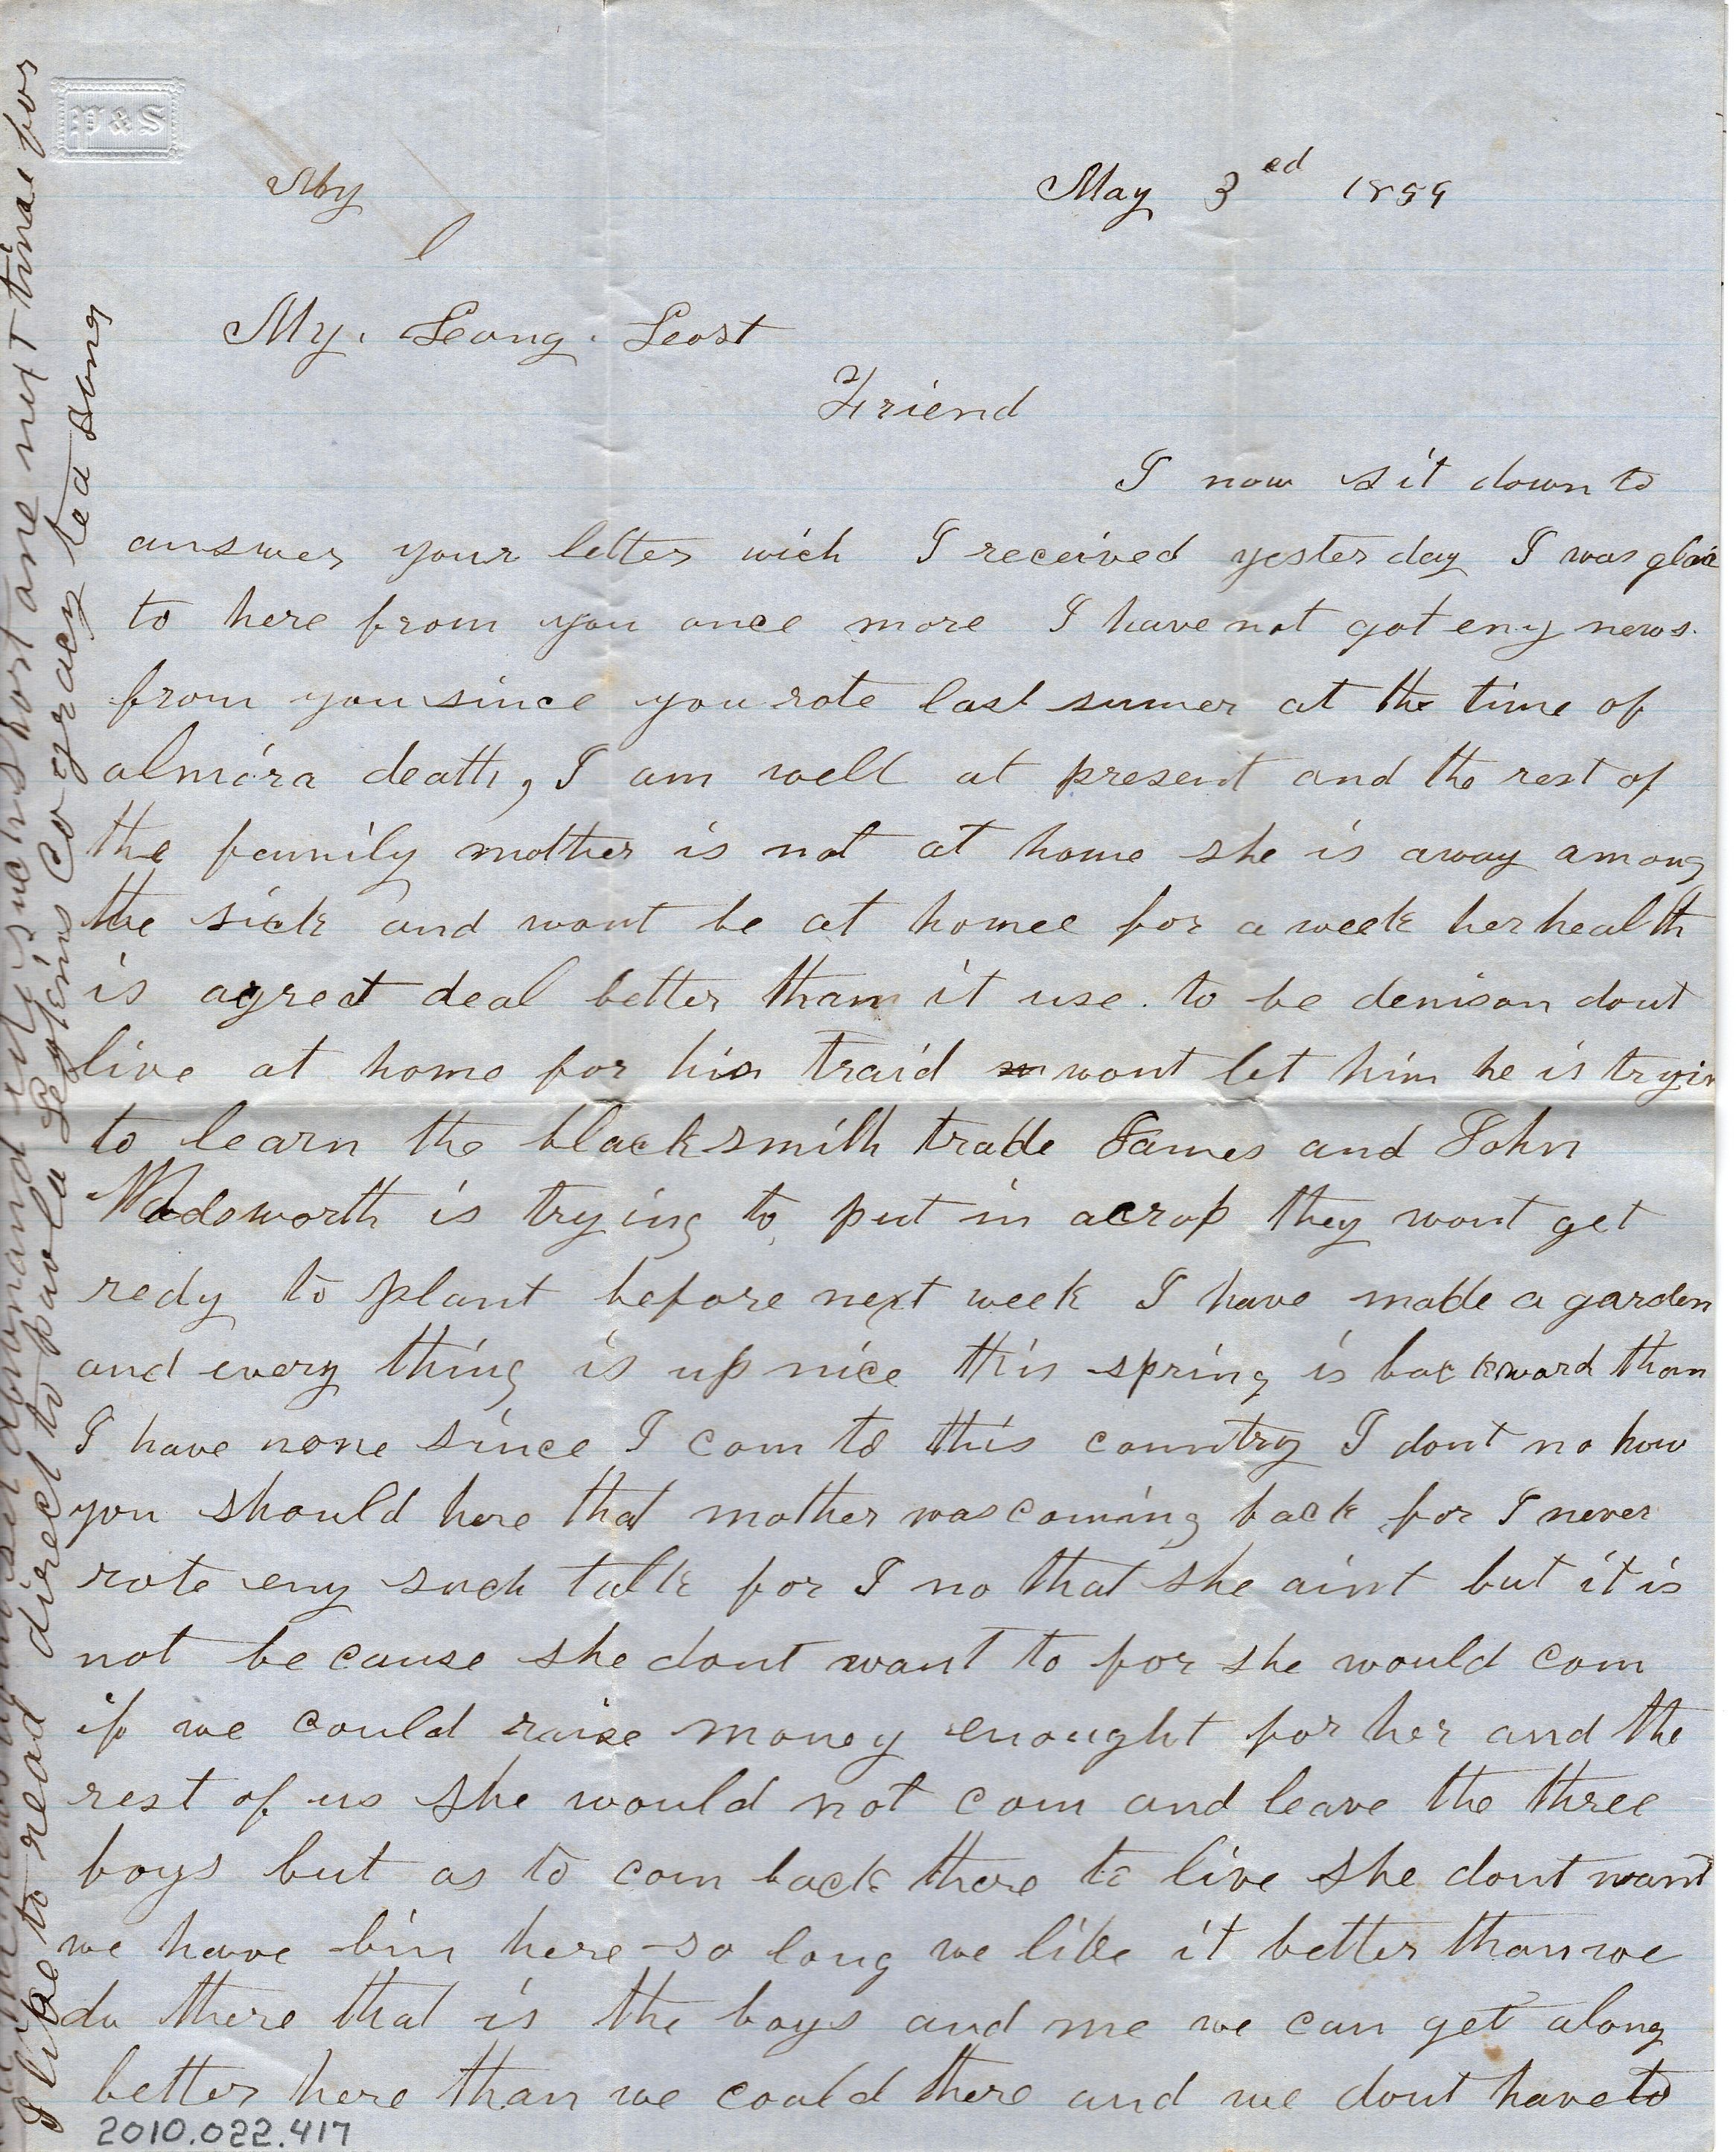 P & S
My
May 3ed 1859
My. Long. Lost
Friend
I now sit down to
answer your letter wich I received yester day I was glad
to here from you once more I have not got eny news.
from you since you rote last sumer at the time of
almira death, I am well at present and the rest of
the family mother is not at home she is away among
the sick and wont be at homee for a week her health
is agreat deal better than it use. to be denison dont
live at home for his traid wont let him he is tryin
to learn the blacksmith trade James and John
Wadsworth is trying to put in acrop they wont get
redy to plant before next week I have made a garden
and every thing is up nice this spring is backward than
I have none since I com to this country I dont no how
you should here that mother was coming back for I never
rote eny such talk for I no that she aint but it is
not be cause she dont want to for she would com
if we could raise money enought for her and the
rest of us she would not com and leave the three
boys but as to com back there to live she dont want
we have bin here so long we like it better than we
do there that is the boys and me we can get along
better here than we could there and we dont have to
2010.022.417
short one next time for
I like to read direct to paola Leykins Co gracy tea song